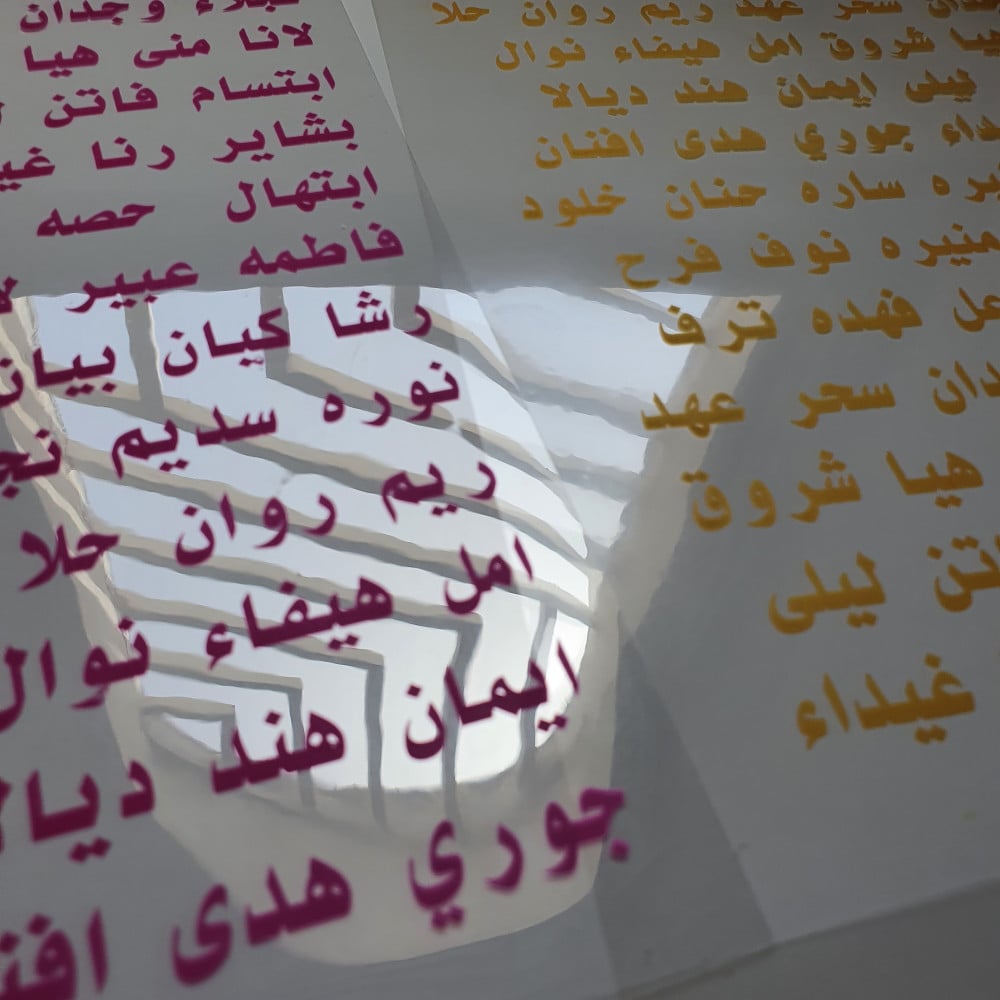 نجلاء وجدان
لانا منى هيا
ابتسام فاتن
بشاير رنا
ابتهال حصه
فاطمه عبير
رشا كيان بيان
نوره سديم
ريم روان حلا
امل هيفاء نوال
ايمان هند ديالا
جوري هدى افنان
سحر عهد ريم روان حلا
هيا شروق امل هيفاء نوال
ليلى ايمان هند ديالا
غيداء جوري هدى افنان
ساره حنان خلود
منيره نوف فرح
فهده ترف
سحر عهد
هيا شروق
فاتن ليلى
غيداء